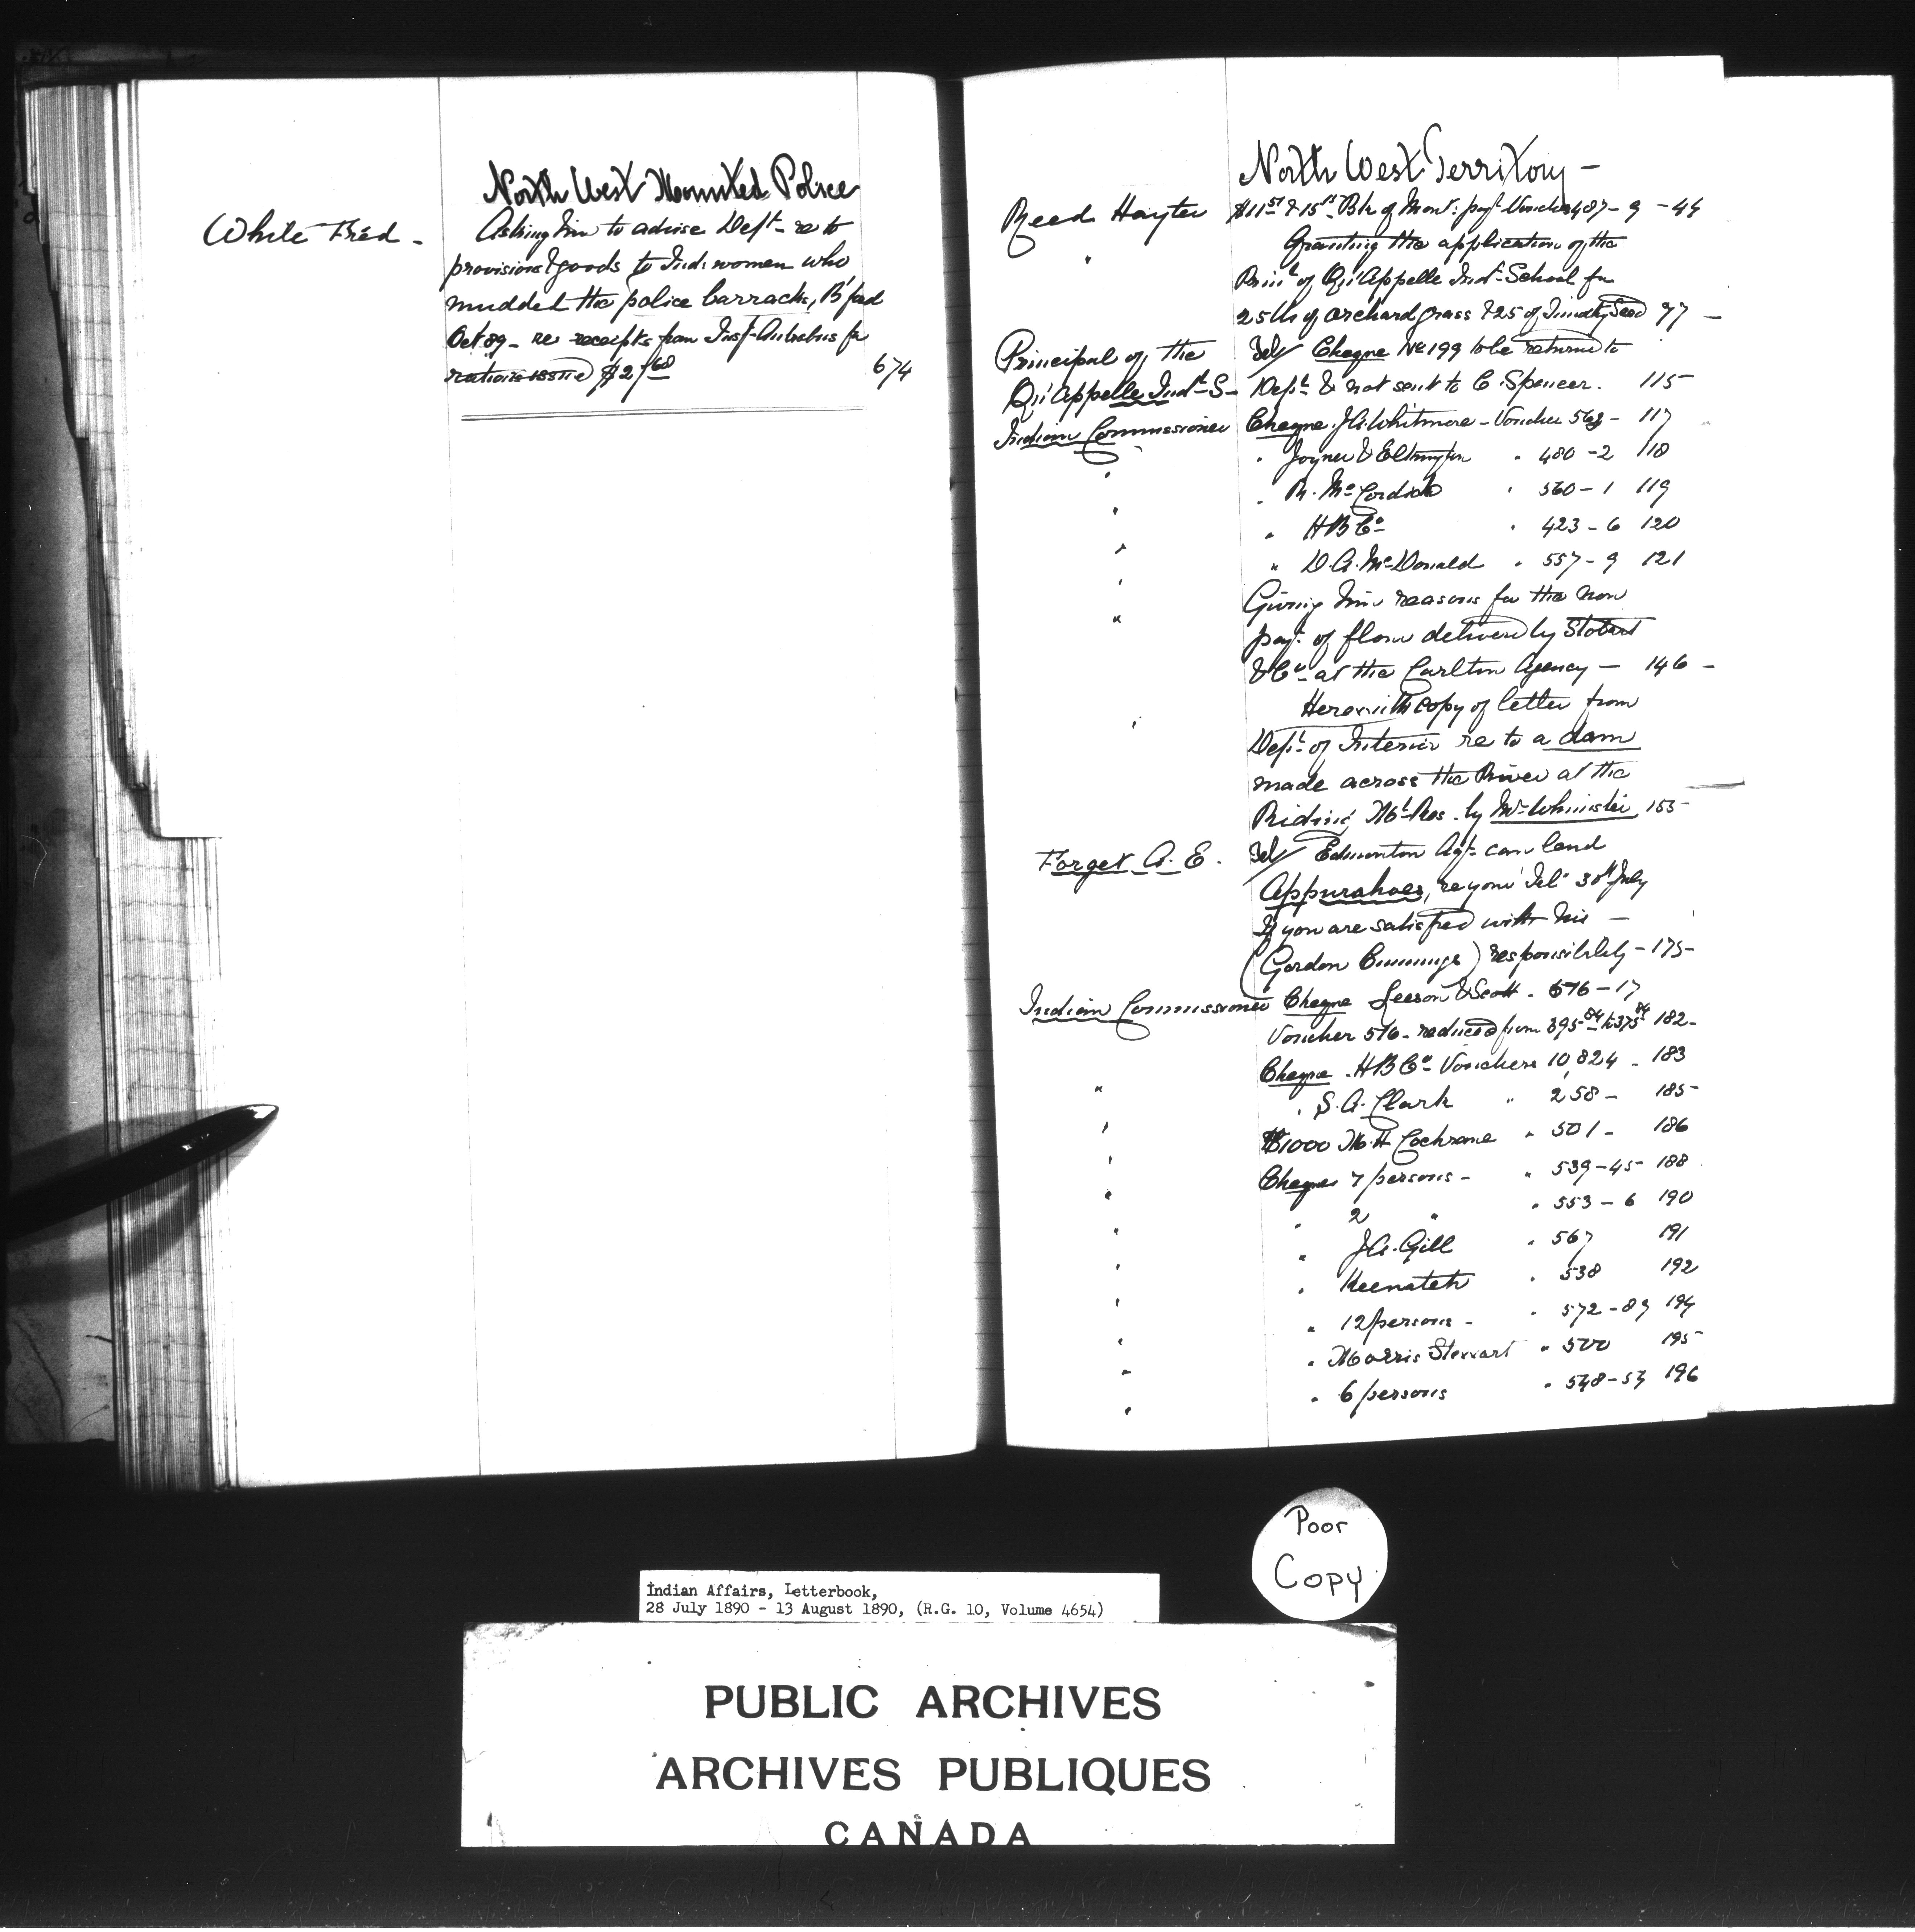 North West Mounted Police
White Fred - Asking him to advise Dept - re to
provisions & goods to Ind: women who
mudded the police barracks, B'ford
Oct 89 - re receipts from Insp
rations issue $2 674
North West Territory -
Reed Hayter Bk of Mont: payt Voucher 487-9 - 44
" Granting the application of the
Prinl of Qu'Appelle Indl School for
25 lbs of orchard grass & 25 of Timothy Seed 77 -
Principal of the Tel/ Cheque No 199 to be returned to
Qu'Appelle Indl S - Dept & not sent to C. Spencer. 115
Indian Commissioner Cheque J.A. Whitmore - Voucher 117
" " Joyner & Elkington " 480-2 118
" " R. McCordick " 560-1 119
" " H B Co " 423-6 120
" " D. A. McDonald " 557-9 121
" Giving him reasons for the non
payt of flour delivered by Stobart
& Co at the Carlton Agency - 146 -
" Herewith copy of letter from
Dept of Interior re to a dam
made across the River at the
Riding Mt Res. by 155
Forget A. E. Tel/ Edmonton Agt can lend
re your Tel 30th July
If you are satisfied with his -
(Gordon Cummings) responsibility - 175
Indian Commissioner Cheque Leeson & Scott - 516-17
Voucher 516 - reduced from 395.84 to 375.84 182 -
" Cheque - H B Co Vouchers 10,824 - 183
" " S. A. Clark " 258 - 185
" $1000 M. H. Cochrane " 501 - 186
" Cheques 7 persons - " 539-45 188
" " 2 " " 553-6 190
" " J. A. Gill " 567 191
" " Keenatch " 538 192
" " 12 persons - " 572-83 194
" " Morris Stewart " 500 195
" " 6 persons " 548-53 196
Poor
Copy
Indian Affairs, Letterbook,
28 July 1890 - 13 August 1890, (R.G. 10, Volume 4654)
PUBLIC ARCHIVES
ARCHIVES PUBLIQUES
CANADA